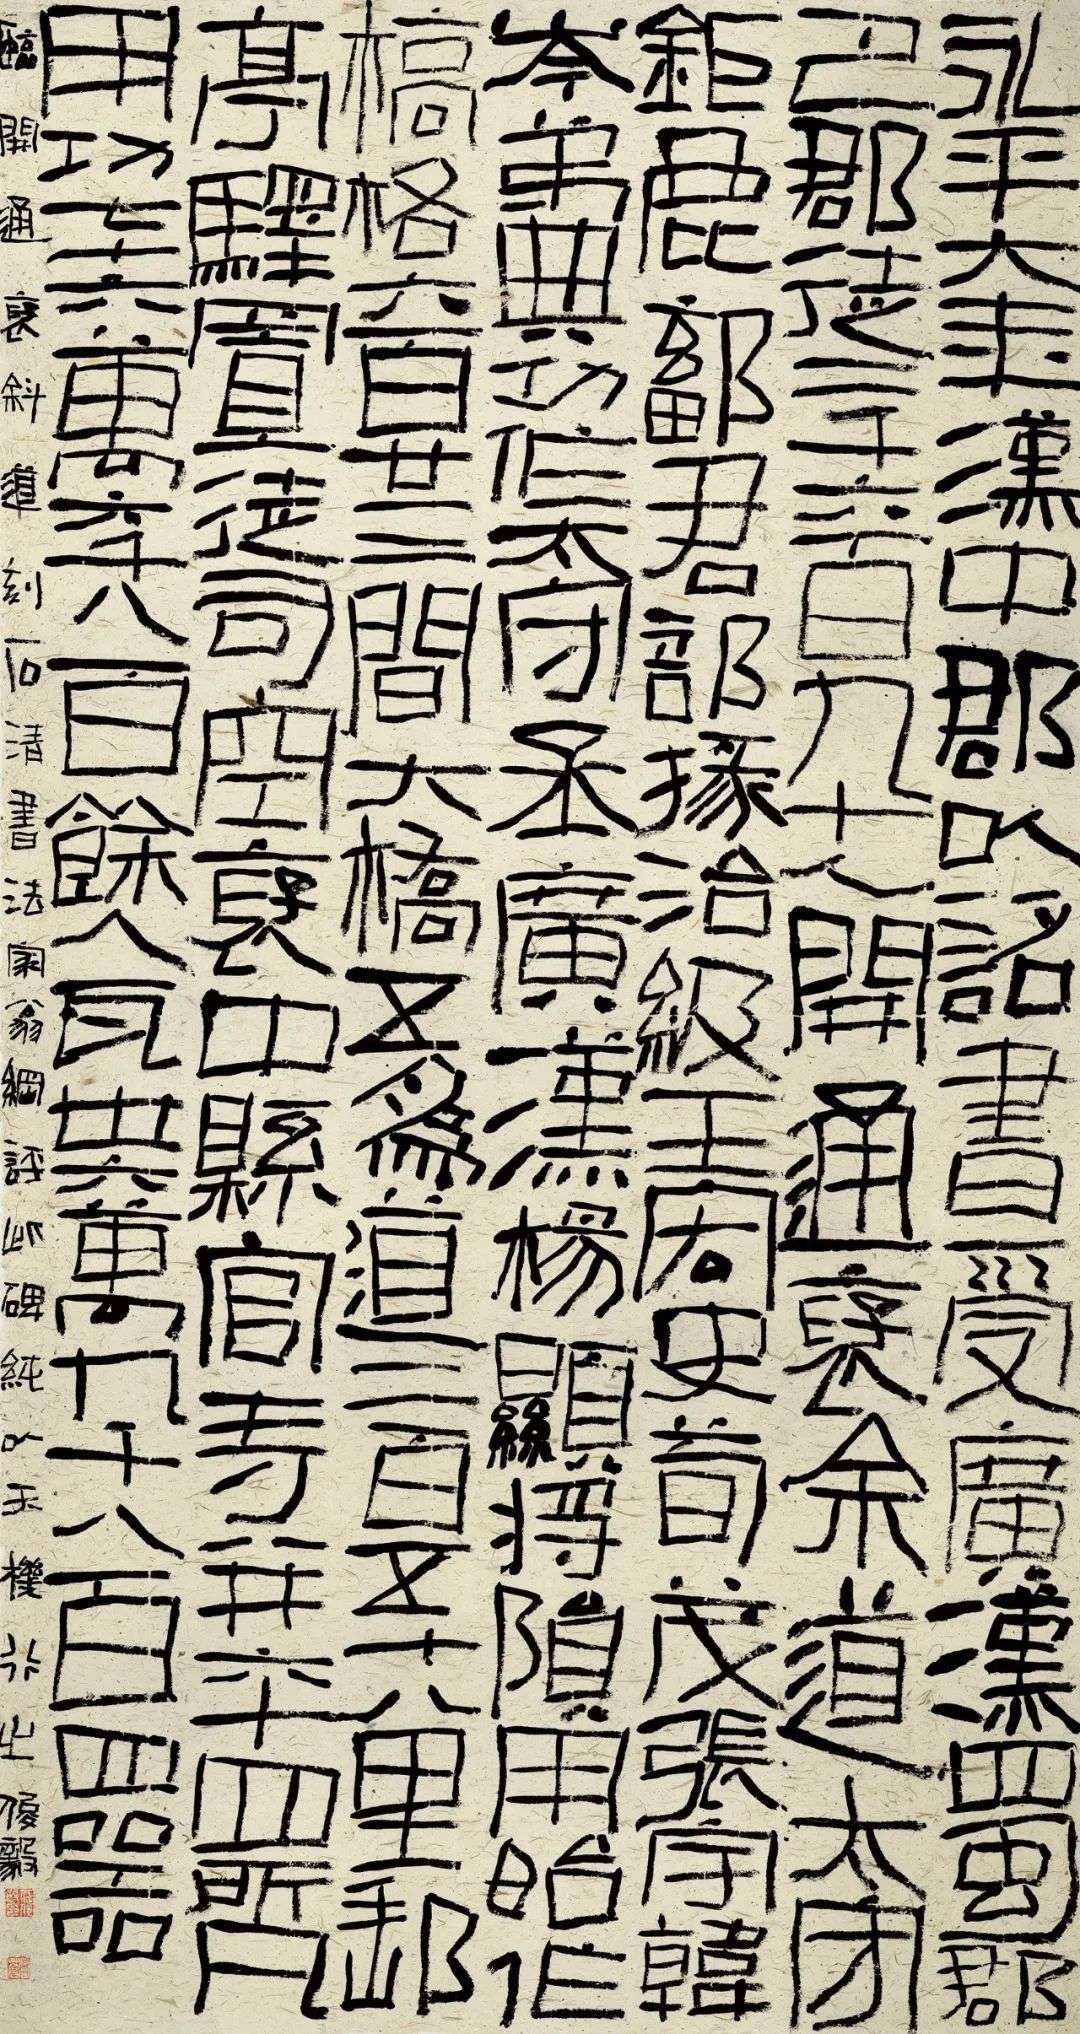 永平六年漢中郡以詔書受廣漢蜀郡
巴郡徒二千六百九十人開通褒余道太守
鉅鹿鄐君部掾治級王宏史荀茂張宇韓
岑弟典功作太守丞廣漢楊顯將隕用始作
橋格六百廿三間大橋五爲道二百五十八里郵
亭驛置徒司空褒中縣官寺并六十四所凡
用功七十六萬六千八百餘人瓦卅六萬九千八百四器
臨開通褒斜道刻石清書法家翁綱評此碑純以天機行之俊毅